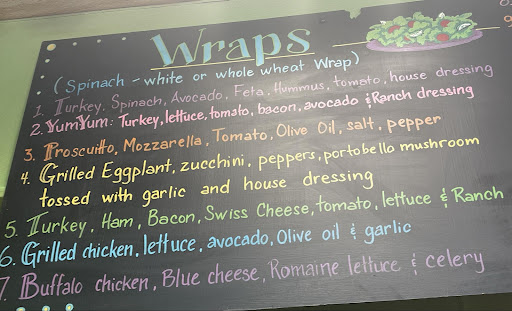 Wraps
(Spinach - white or whole wheat Wrap)
1. Turkey, Spinach, Avocado, Feta, Hummus, tomato, house dressing
2. YumYum: Turkey, lettuce, tomato, bacon, avocado & Ranch dressing
3. Proscuitto, Mozzarella, Tomato, Olive Oil, salt, pepper
4. Grilled Eggplant, zucchini, peppers, portobello mushroom
tossed with garlic and house dressing
5. Turkey, Ham, Bacon, Swiss Cheese, tomato, lettuce & Ranch
6. Grilled chicken, lettuce, avocado, Olive oil & garlic
7. Buffalo chicken, Blue cheese, Romaine lettuce & celery